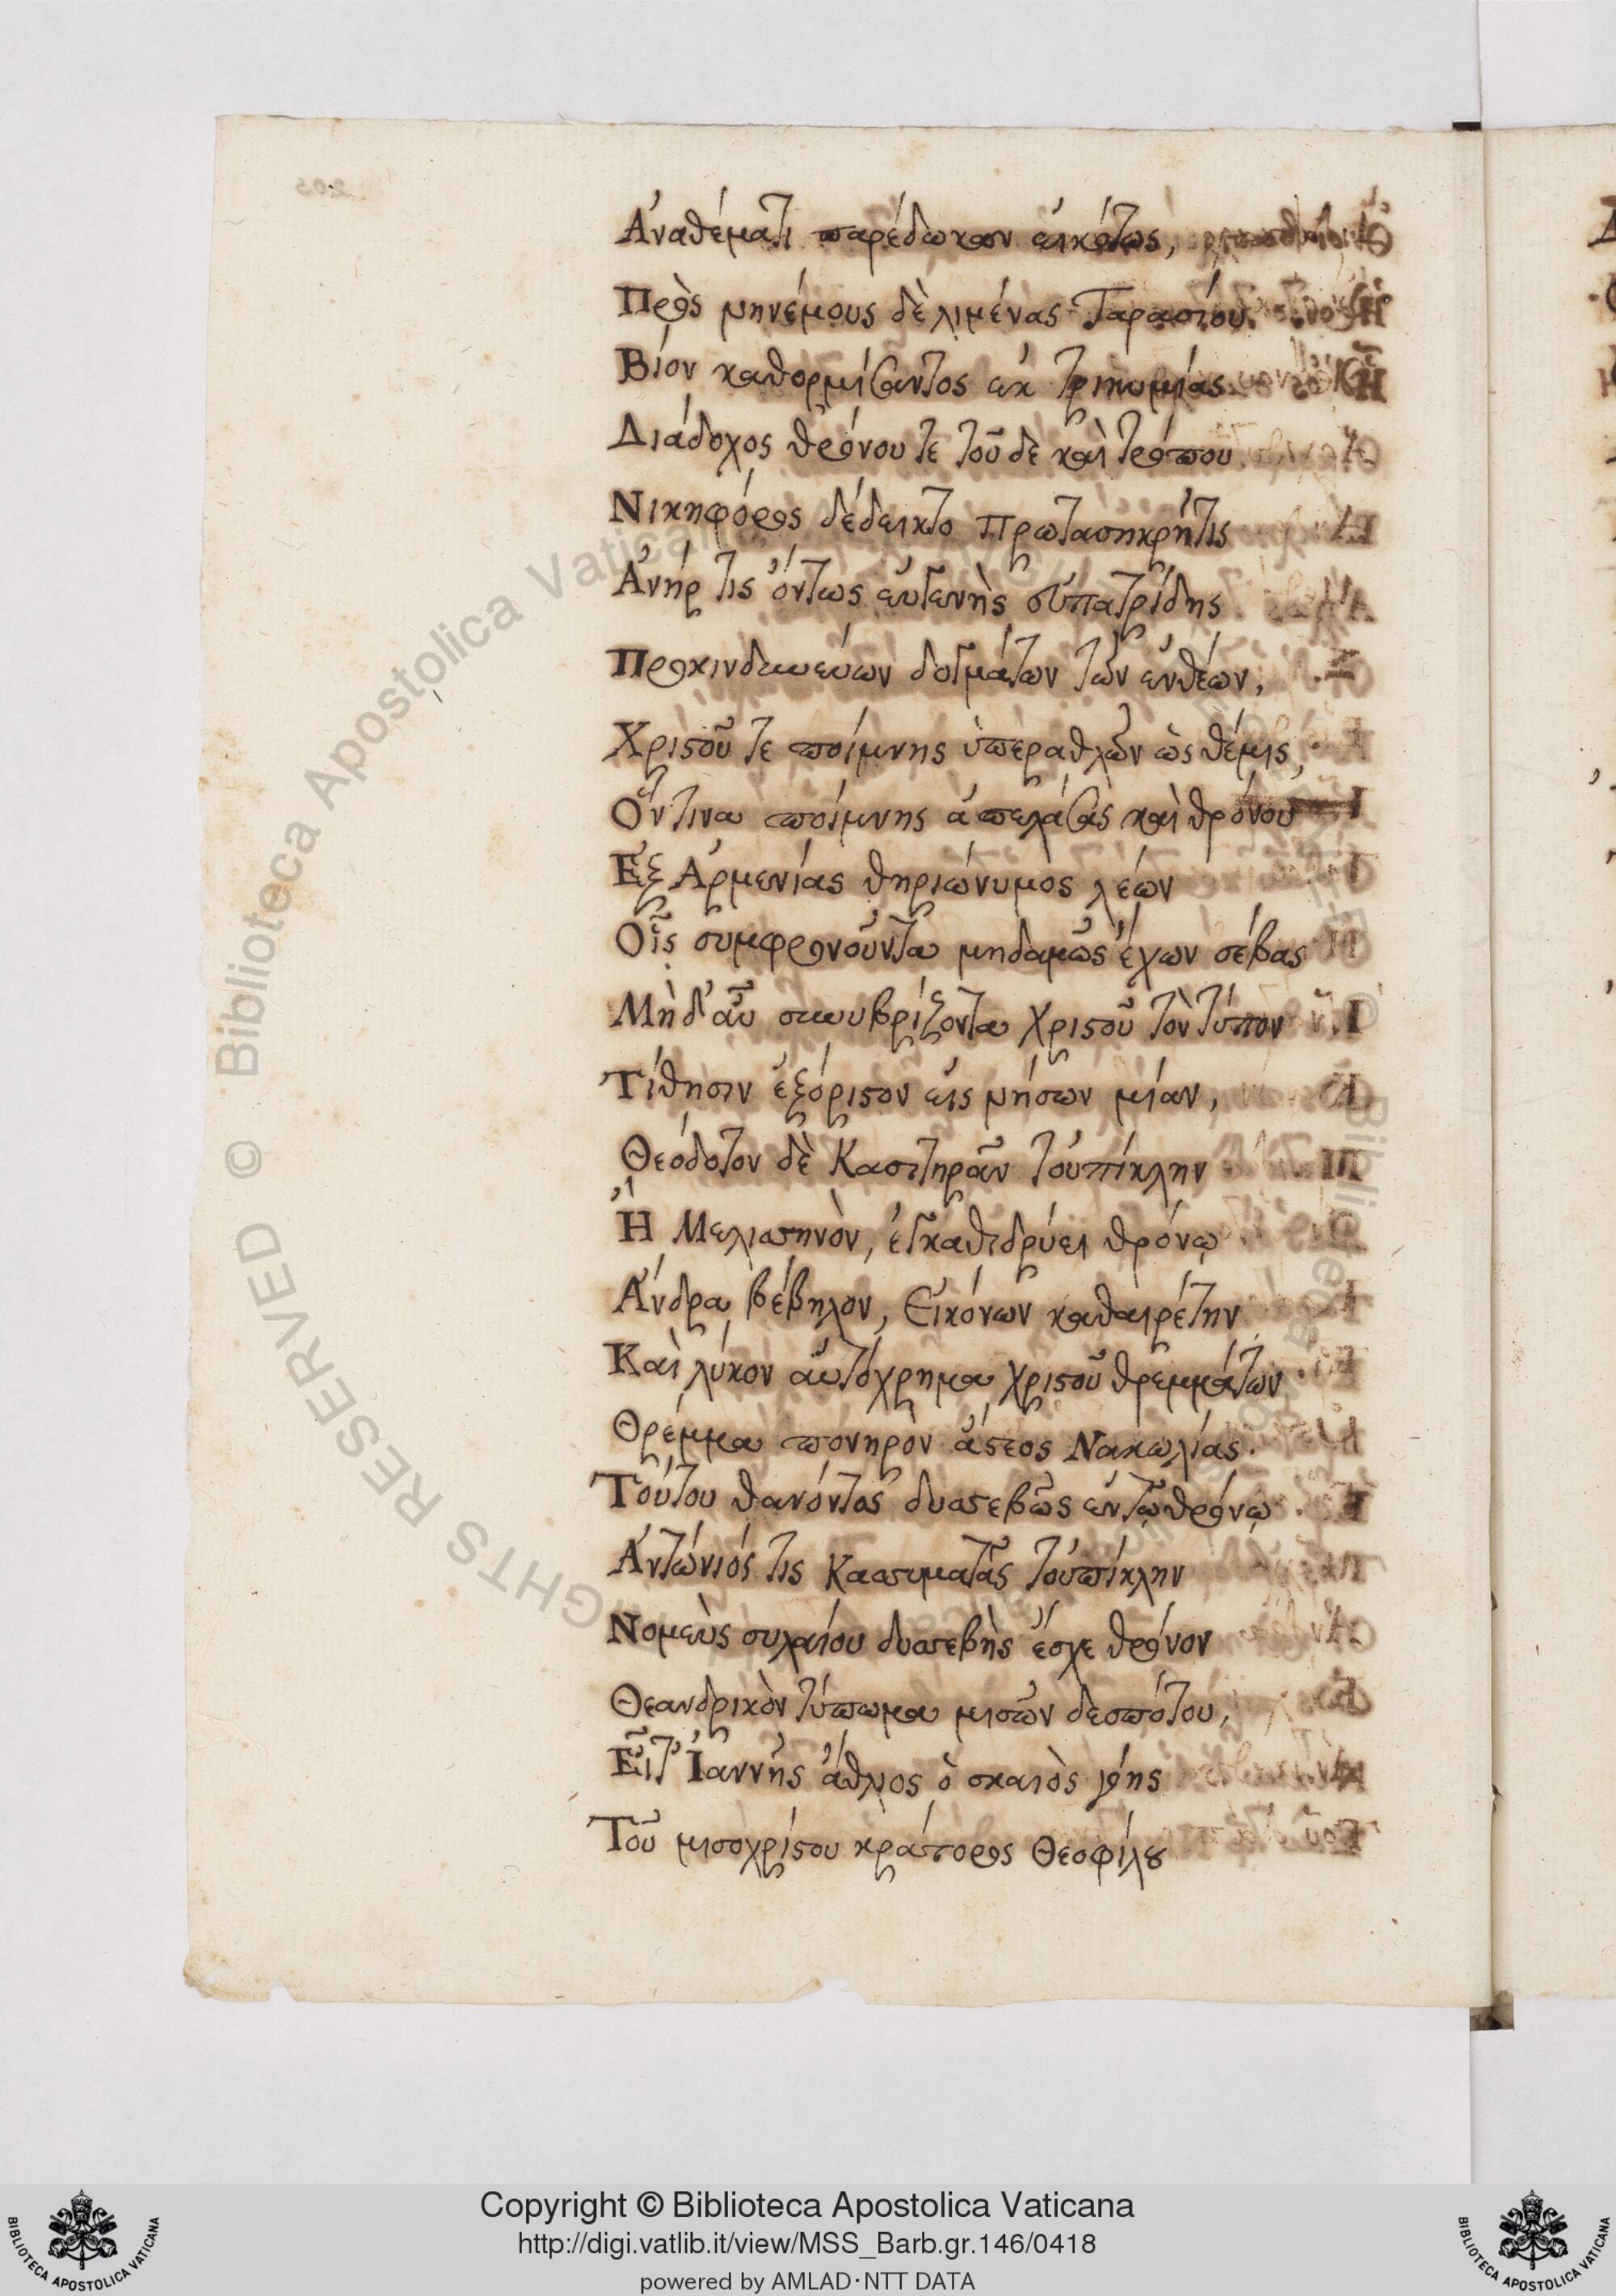 Ἀναθέματι παρέδωκαν εἰκότως,
Πρὸς νηνέμους δὲ λιμένας Ταρασίου
Βίον καθορμίσαντος ἐκ τρικυμίας
Διάδοχος θρόνου τε τοῦδε καὶ τρόπου
Νικηφόρος δέδεικτο Πρωτασηκρῆτις
Ἀνήρ τις ὄντως εὐγενὴς εὐπατρίδης
Προκινδυνεύων δογμάτων τῶν ἐνθέων,
Χριστοῦ τε ποίμνης ὑπεραθλῶν ὡς θέμις,
Ὅντινα ποίμνης ἀπελάσας καὶ θρόνου
Ἐξ Ἀρμενίας θηριώνυμος λέων
Οἷς συμφρονοῦντα μηδαμῶς ἔχων σέβας
Μὴδ' αὖ συνυβρίζοντα Χριστοῦ τὸν τύπον
Τίθησιν ἐξόριστον εἰς νήσων μίαν,
Θεόδοτον δὲ Κασιτηρᾶν τοὐπίκλην
Ἢ Μελισσηνὸν, ἐγκαθιδρύει θρόνῳ
Ἄνδρα βέβηλον, Εἰκόνων καθαιρέτην
Καὶ λύκον αὐτόχρημα Χριστοῦ θρεμμάτων
Θρέμμα πονηρὸν ἄστεος Νακωλίας.
Τούτου θανόντος δυσσεβῶς ἐν τῷ θρόνῳ
Ἀντώνιός τις Κασυματᾶς τοὐπίκλην
Νομεὺς συλαίου δυσσεβὴς ἔσχε θρόνον
Θεανδρικὸν τύπωμα μισῶν δεσπότου,
Εἶτ' Ἰαννῆς ἄθλιος ὁ σκαιὸς γόης
Τοῦ μισοχρίστου κράτορος Θεοφίλου
Copyright © Biblioteca Apostolica Vaticana
http://digi.vatlib.it/view/MSS_Barb.gr.146/0418
powered by AMLAD·NTT DATA
BIBLIOTECA APOSTOLICA VATICANA
BIBLIOTECA APOSTOLICA VATICANA